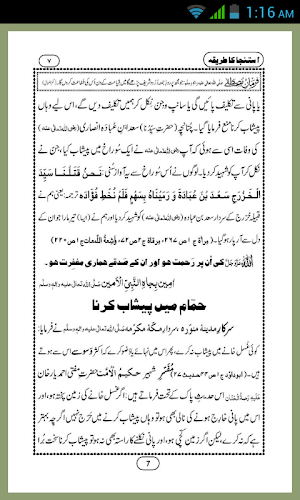 1:16 AM
۷ استنجا کا طریقہ
یا پانی سے تکلیف پائیں گی یا سانپ وجن نکل کر ہمیں تکلیف دیں گے، اس لیے وہاں
پیشاب کرنا منع فرمایا گیا۔ چُنانچِہ (حضرتِ سیِّدُنا) سعد ابنِ عُبادہ انصاری (رضی اللہ تعالٰی عنہ)
کی وفات اسی سے ہوئی کہ آپ نے ایک سُوراخ میں پیشاب کیا، جن نے
نکل کر آپ کو شہید کردیا۔ لوگوں نے اُس سُوراخ سے یہ آواز سُنی: نَحنُ قَتَلنَا سَیِّدَ
الخَزرَجِ سَعدَ بنَ عُبَادَۃَ وَ رَمَینَاہُ بِسَھمٍ فَلَم نُخطِ فُؤَادَہ ترجمہ: یعنی ہم نے
قبیلۂ خَزرَج کے سردار سعد بن عبادہ کو شہید کردیا اور ہم نے (ایسا) تیر مارا جو ان کے
دل سے آر پار ہوگیا۔ (مراٰۃ ج ۱ ص ۲۶۷، مرقاۃ ج ۲ ص ۷۲، واَشِعَّۃُ اللَّمعات ج ۱ ص ۲۲۰)
اللہ عَزَّوَجَلَّ کی اُن پر رَحمت ہو اور ان کے صَدقے ھماری مغفِرت ہو۔
اٰمین بِجاہِ النَّبِیِّ الْاَمین صلَّی اللہ تعالٰی علیہ واٰلہٖ وسلَّم
حمّام میں پیشاب کرنا
سرکارِ مدینۂ منوّرہ، سردارِ مکّۂ مکرّمہ صلَّی اللہ تعالٰی علیہ واٰلہٖ وسلَّم نے فرمایا:
کوئی غسل خانے میں پیشاب نہ کرے، پھر اس میں نہائے یا وُضو کرے کہ اکثر وَسوَسے اس سے ہوتے
ہیں۔ (ابوداؤد ج ۱ ص ۴۴ حدیث ۲۷) مُفَسِّرِ شہیر حکیمُ الْاُمَّت حضرتِ مفتی احمد یار خان
علیہ رحمۃ الحنّان اس حدیثِ پاک کے تحت فرماتے ہیں: اگر غسل خانے کی زمین پختہ ہو، اور
اس میں پانی خارج ہونے کی نالی بھی ہو تو وہاں پیشاب کرنے میں حَرَج نہیں اگرچِہ بہتر
ہے کہ نہ کرے، لیکن اگر زمین کچّی ہو، اور پانی نکلنے کا راستہ بھی نہ ہو تو پیشاب کرنا سخت بُرا
7